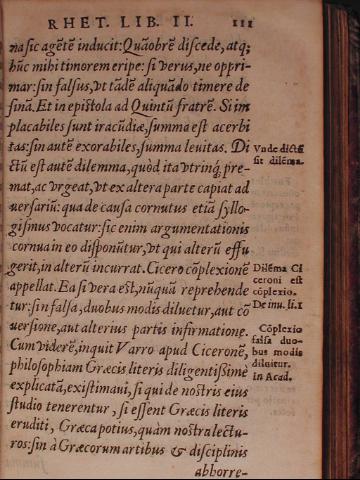 RHET. LIB. II. 111
na sic agētē inducit: Quāobrē discede, atq;
hūc mihi timorem eripe: si verus, ne oppri-
mar: sin falsus, vt tādē aliquādo timere de
sinā. Et in epistola ad Quintū fratrē. Si im
placabiles sunt iracūdiæ, summa est acerbi
tas: sin autē exorabiles, summa leuitas. Di
ctū est autē dilemma, quòd ita vtrinq; pre-
mat, ac vrgeat, vt ex altera parte capiat ad
uersariū: qua de causa cornutus etiā syllo-
gismus vocatur: sic enim argumentationis
cornua in eo disponūtur, vt qui alterū effu
gerit, in alterū incurrat. Cicero cōplexionē
appellat. Ea si vera est, nūquā reprehende
tur: sin falsa, duobus modis diluetur, aut cō
uersione, aut alterius partis infirmatione.
Cum viderē, inquit Varro apud Ciceronē,
philosophiam Græcis literis diligentißimè
explicatā, existimaui, si qui de nostris eius
studio tenerentur, si essent Græcis literis
eruditi, Græca potius, quàm nostra lectu-
ros: sin à Græcorum artibus & disciplinis
abhorre-
Vnde dictū
sit dilēma.
Dilēma Ci
ceroni est
cōplexio.
De inu. li. 1
Cōplexio
falsa duo-
bus modis
diluitur.
In Acad.